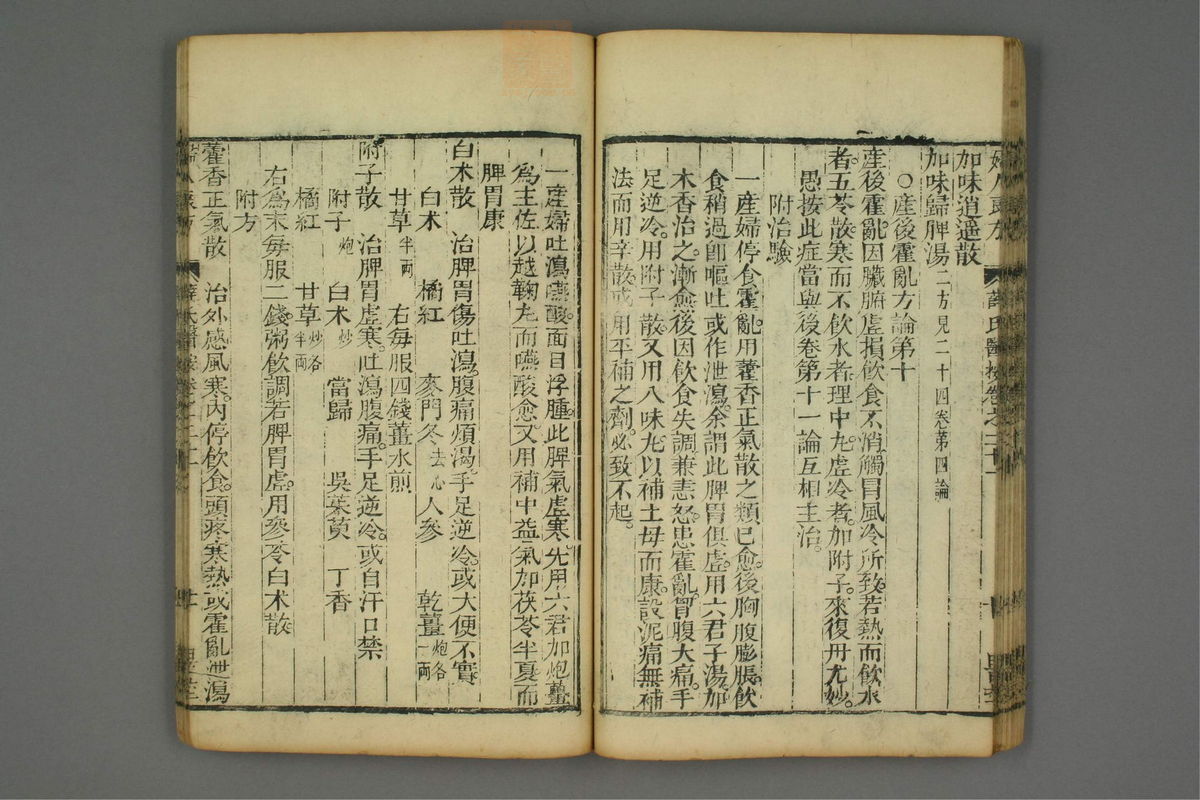 加味逍遙散
加味歸脾湯二方見二十四卷第四論
○產後霍亂方論第十
產後霍亂因臟腑虛損飲食不消觸冒風冷所致若熱而飲水
者五苓散寒而不飲水者理中丸虛冷者加附子來復丹尤妙
愚按此症當與後卷第十一論互相主治
附治驗
一產婦停食霍亂用藿香正氣散之類已愈後胸腹膨脹飲
食稍過卽嘔吐或作泄瀉余謂此脾胃俱虛用六君子湯加
木香治之漸愈後因飲食失調兼恚怒患霍亂胷腹大痛手
足逆冷用附子散又用八味丸以補土母而康設泥痛無補
法而用辛散或用平補之劑必致不起
一產婦吐瀉嚥酸面目浮腫此脾氣虛寒先用六君加炮薑
爲主佐以越鞠丸而嚥酸愈又用補中益氣加茯苓半夏而
脾胃康
白朮散 治脾胃傷吐瀉腹痛煩渴手足逆冷或大便不實
白朮 橘紅 麥門冬去心 人參 乾薑炮各一兩
甘草半兩 右每服四錢薑水煎
附子散 治脾胃虛寒吐瀉腹痛手足逆冷或自汗口禁
附子炮 白朮炒 當歸 吳茱萸 丁香
橘紅 甘草炒各半兩
右爲末每服二錢粥飲調若脾胃虛用參苓白朮散
附方
藿香正氣散 治外感風寒內停飲食頭疼寒熱或霍亂泄瀉